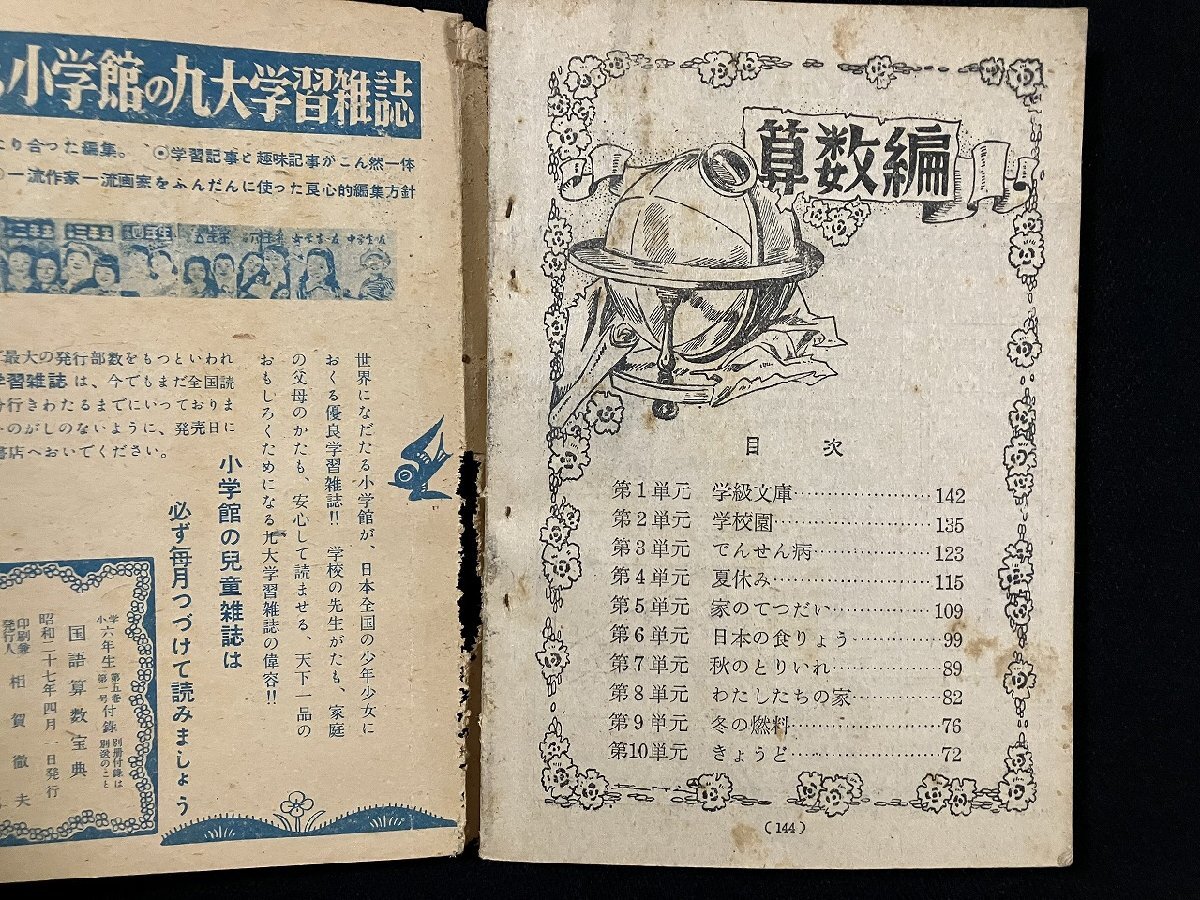 小学館の九大学習雑誌
り合った編集。 ◎学習記事と趣味記事がこん然一体
◎一流作家一流画家をふんだんに使った良心的編集方針
最大の発行部数をもつといわれ
学習雑誌は、今でもまだ全国読
分行きわたるまでにいっておりま
のがしのないように、発売日に
書店へおいでください。
世界になだたる小学館が、日本全国の少年少女に
おくる優良学習雑誌!! 学校の先生がたも、家庭
の父母のかたも、安心して読ませる、天下一品の
おもしろくためになる九大学習雑誌の偉容!!
小学館の兒童雑誌は
必ず毎月つづけて読みましょう
小学六年生 第五巻第一号 付錄 別册付錄は別送のこと
国語算数宝典
昭和二十七年四月一日発行
印刷兼発行人 相賀徹夫
算数編
目次
第1単元 学級文庫 142
第2単元 学校園 135
第3単元 でんせん病 123
第4単元 夏休み 115
第5単元 家のてつだい 109
第6単元 日本の食りょう 99
第7単元 秋のとりいれ 89
第8単元 わたしたちの家 82
第9単元 冬の燃料 76
第10単元 きょうど 72
(144)